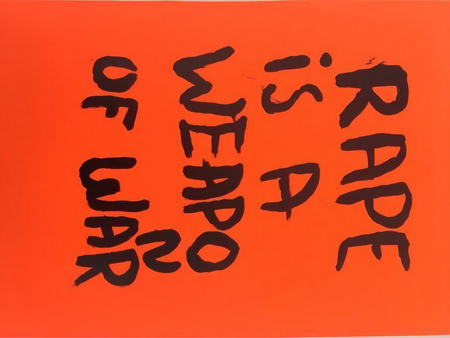 RAPE
iS A
WEAPON
OF WAR